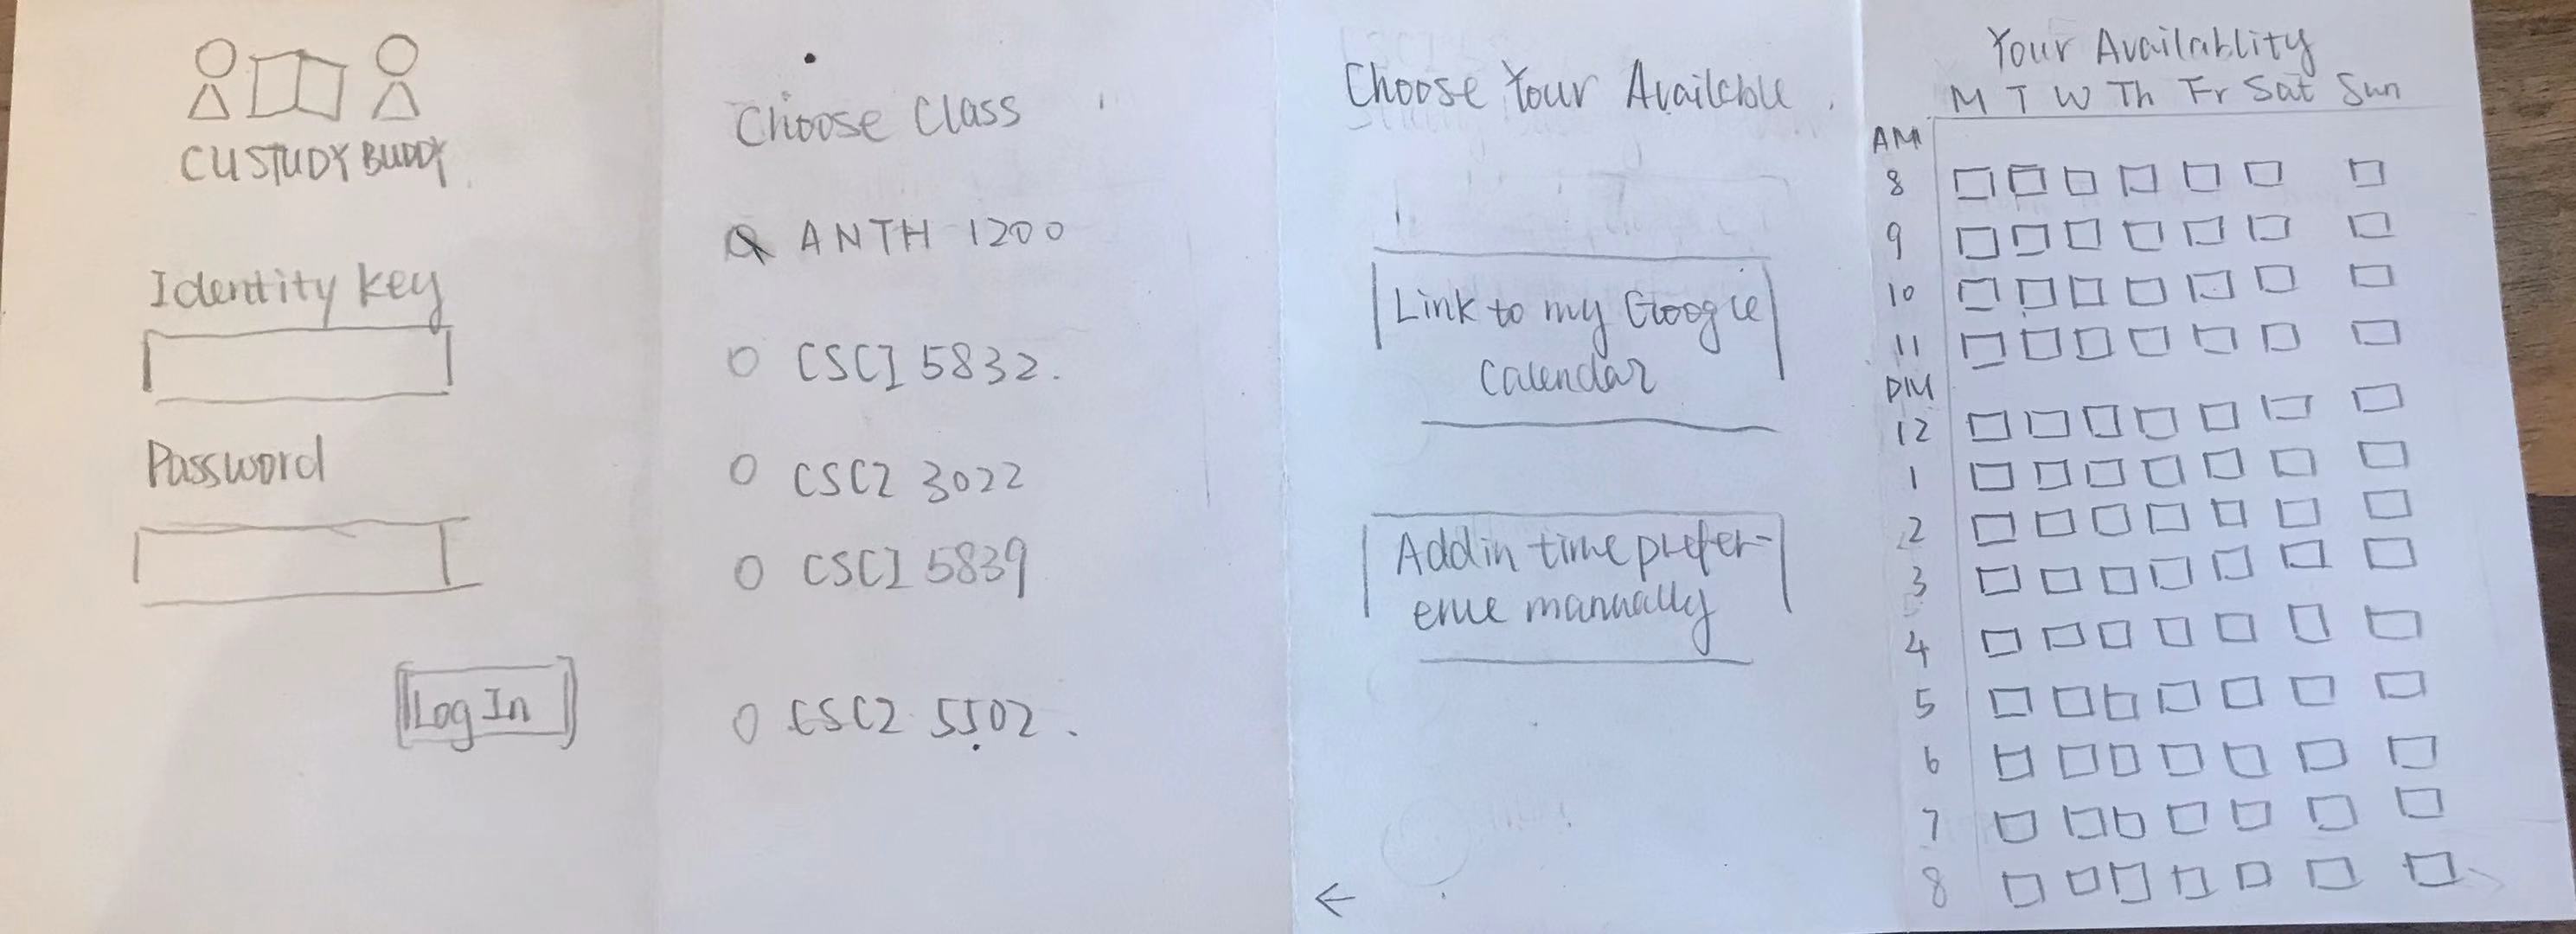 CUSTUDY BUDDY
Identity key
Password
Log In
Choose Class
ANTH 1200
CSCI 5832.
CSCI 3022
CSCI 5839
CSCI 5502.
Choose Your Available
Link to my Google
Calendar
Add in time prefer-
ence manually
←
Your Availablity
M T W Th Fr Sat Sun
AM
8
9
10
11
PM
12
1
2
3
4
5
6
7
8